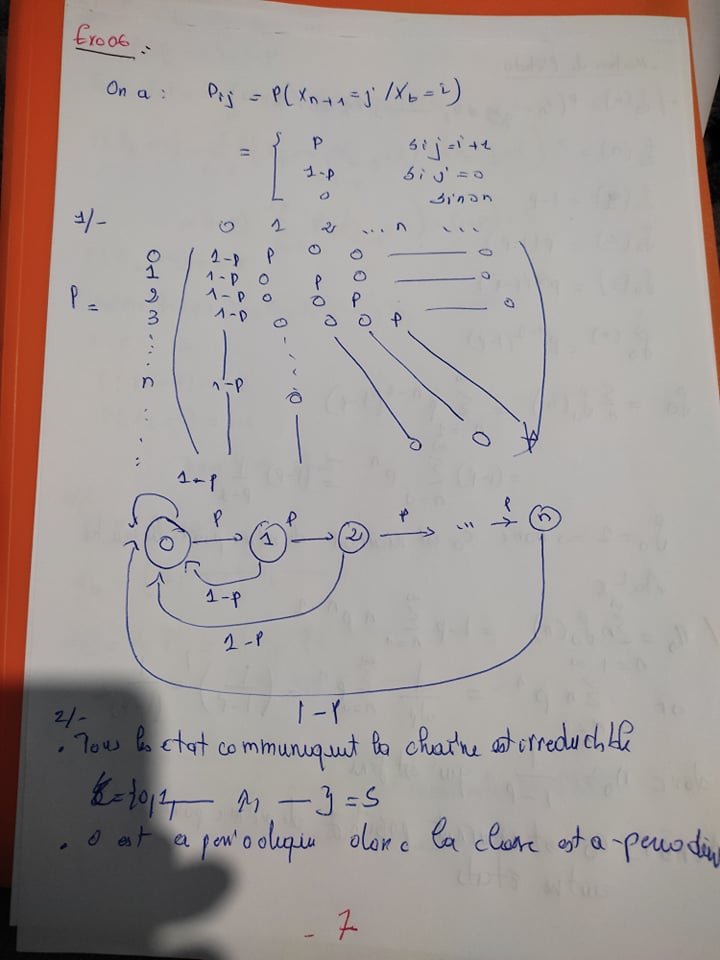 Exo06 :
On a : Pij = P(Xn+1 = j / Xb = i)
= { P si j = i+1
1-P si j = 0
0 sinon
1/-
0 1 2 ... n ...
0 1-P P 0 0 — 0
1 1-P 0 P 0 — 0
P = 2 1-P 0 0 P — 0
3 1-P 0 0 0 P
n 1-P 0
0 0
1-P
0 P 1 P 2 P ... P n
1-P
1-P
1-P
2/-
. Tous les etat communiquent la chaîne est irreductible
= {0,1, — n, — } = S
. 0 est a periodique donc la classe est a-periodique
- 7